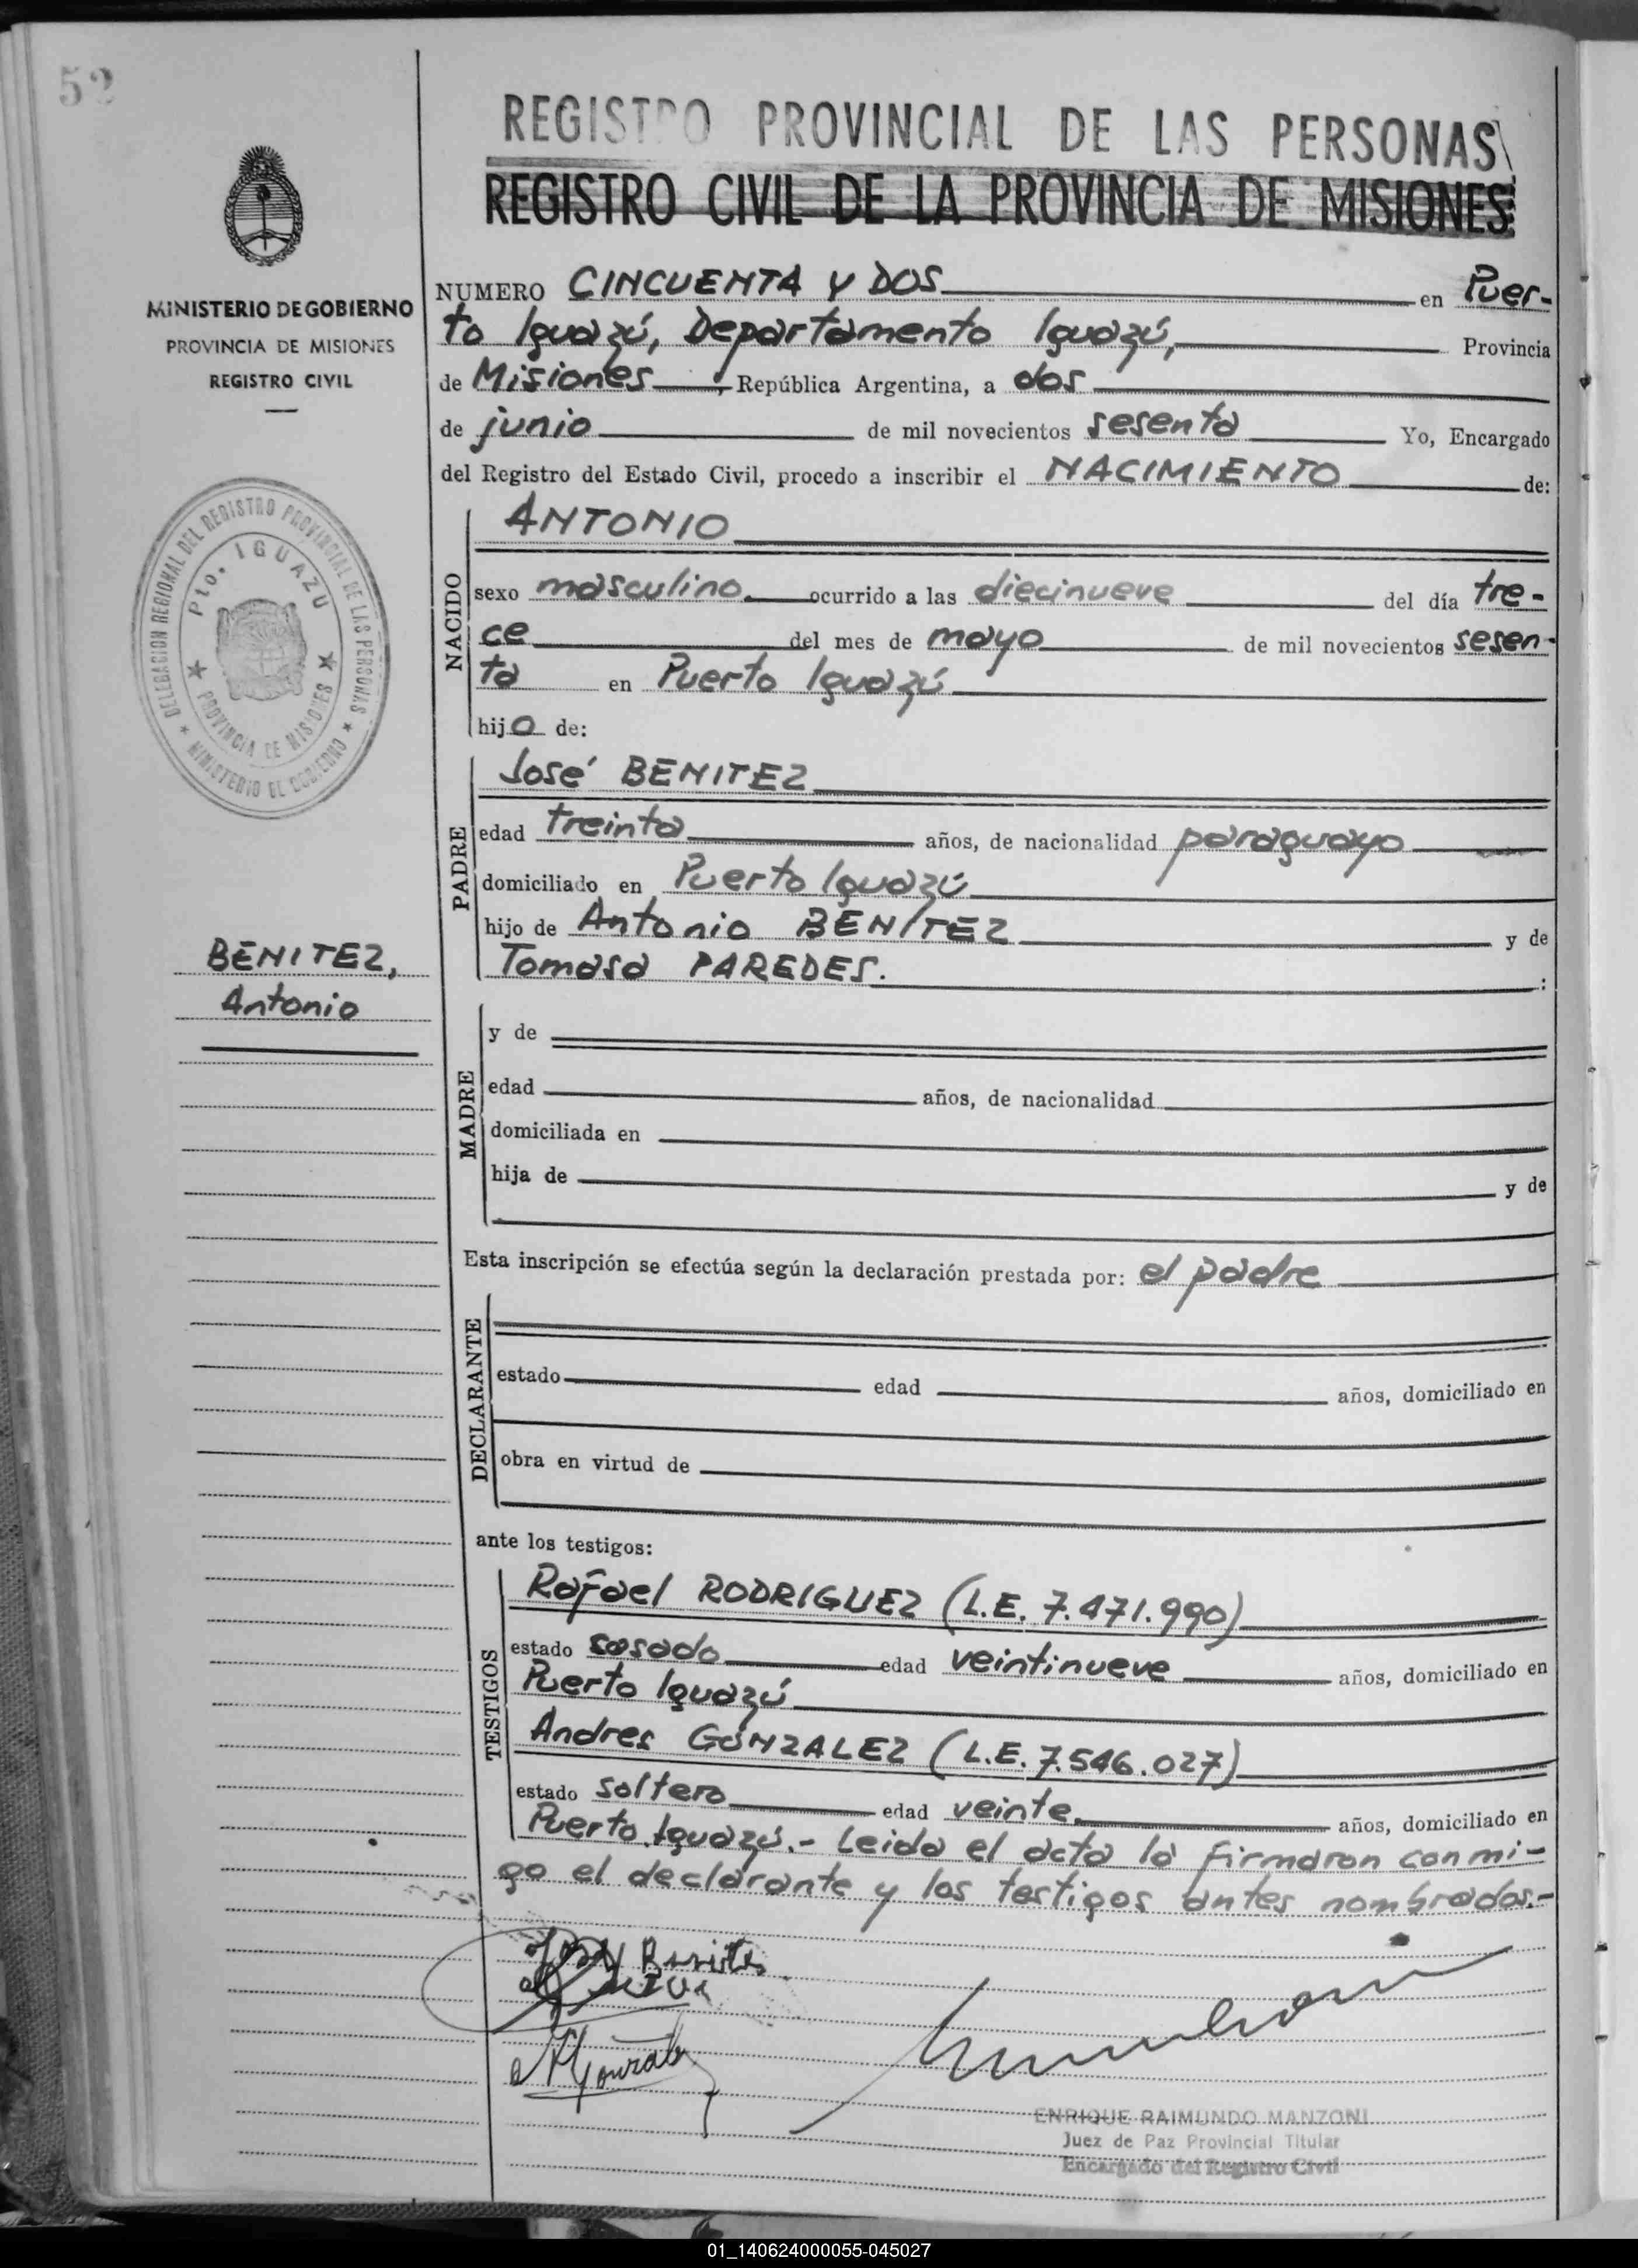 52
REGISTRO PROVINCIAL DE LAS PERSONAS
REGISTRO CIVIL DE LA PROVINCIA DE MISIONES
MINISTERIO DE GOBIERNO
PROVINCIA DE MISIONES
REGISTRO CIVIL
DELEGACION REGIONAL DEL REGISTRO PROVINCIAL DE LAS PERSONAS
★ MINISTERIO DE GOBIERNO ★
Pto. IGUAZU
★ PROVINCIA DE MISIONES ★
BENITEZ,
Antonio
NUMERO CINCUENTA Y DOS en Puer-
to Iguazú, Departamento Iguazú, Provincia
de Misiones, República Argentina, a dos
de junio de mil novecientos sesenta Yo, Encargado
del Registro del Estado Civil, procedo a inscribir el NACIMIENTO de:
NACIDO
ANTONIO
sexo masculino. ocurrido a las diecinueve del día tre-
ce del mes de mayo de mil novecientos sesen-
ta en Puerto Iguazú
hijo de:
PADRE
José BENITEZ
edad treinta años, de nacionalidad paraguayo
domiciliado en Puerto Iguazú
hijo de Antonio BENITEZ y de
Tomasa PAREDES. :
MADRE
y de
edad años, de nacionalidad
domiciliada en
hija de y de
Esta inscripción se efectúa según la declaración prestada por: el padre
DECLARANTE
estado edad años, domiciliado en
obra en virtud de
ante los testigos:
TESTIGOS
Rafael RODRIGUEZ (L.E. 7.471.990)
estado casado edad veintinueve años, domiciliado en
Puerto Iguazú
Andres GONZALEZ (L.E. 7.546.027)
estado soltero edad veinte. años, domiciliado en
Puerto Iguazú.- Leida el acta la firmaron conmi-
go el declarante y los testigos antes nombrados.-
ENRIQUE RAIMUNDO MANZONI
Juez de Paz Provincial Titular
Encargado del Registro Civil
01_140624000055-045027